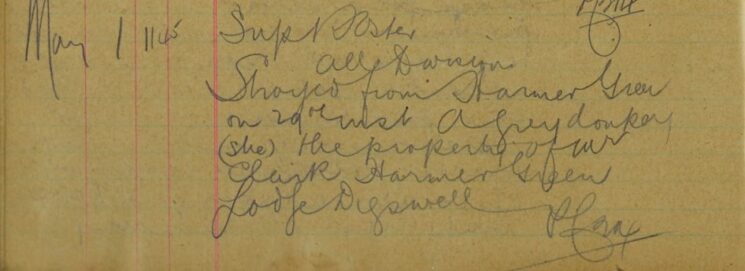 May 1 1145 Supt Foster
All Division
Strayed from Harmer Green
on 29th inst A grey donkey
(she) the property of Mr
Clark Harmer Green
Lodge Digswell